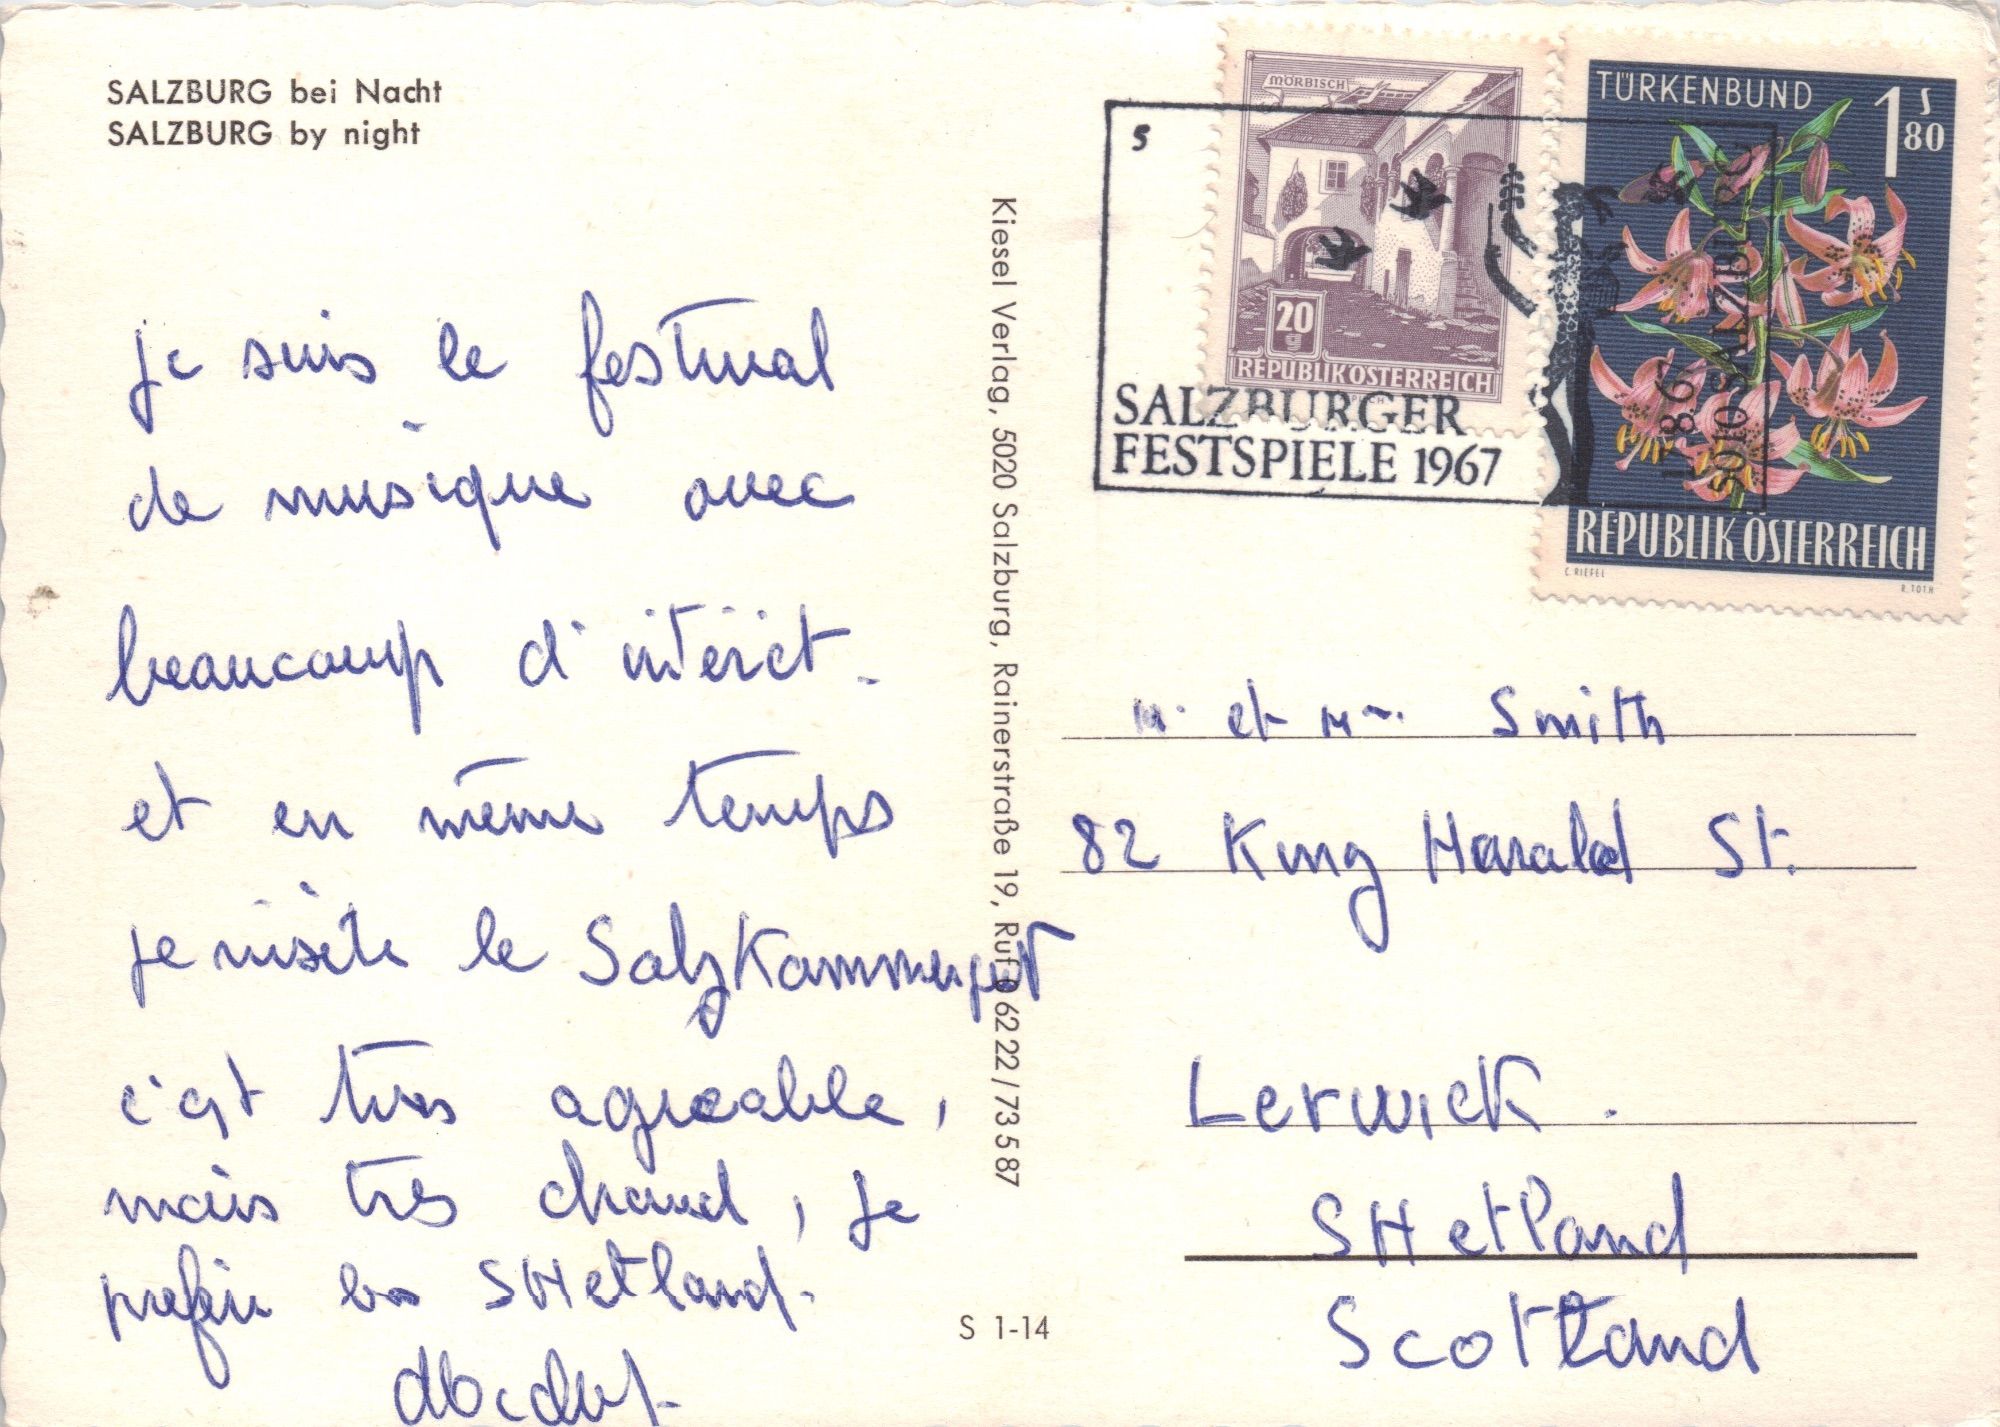 SALZBURG bei Nacht
SALZBURG by night
je suis le festival
de musique avec
beaucoup d'intérêt.
et en même temps
je visite le Salzkammergut
c'est très agréable,
mais très chaud, je
préfère les SHetland.
Kiesel Verlag, 5020 Salzburg, Rainerstraße 19, Ruf 0 62 22 / 73 5 87
S 1-14
MÖRBISCH
20
g
REPUBLIK ÖSTERREICH
TÜRKENBUND
1 S 80
REPUBLIK ÖSTERREICH
C. RIEFEL
R. TOTH
S
SALZBURGER
FESTSPIELE 1967
8.67
5010 SALZBURG
M. et Mme Smith
82 King Harald St.
Lerwick.
SHetland
Scotland